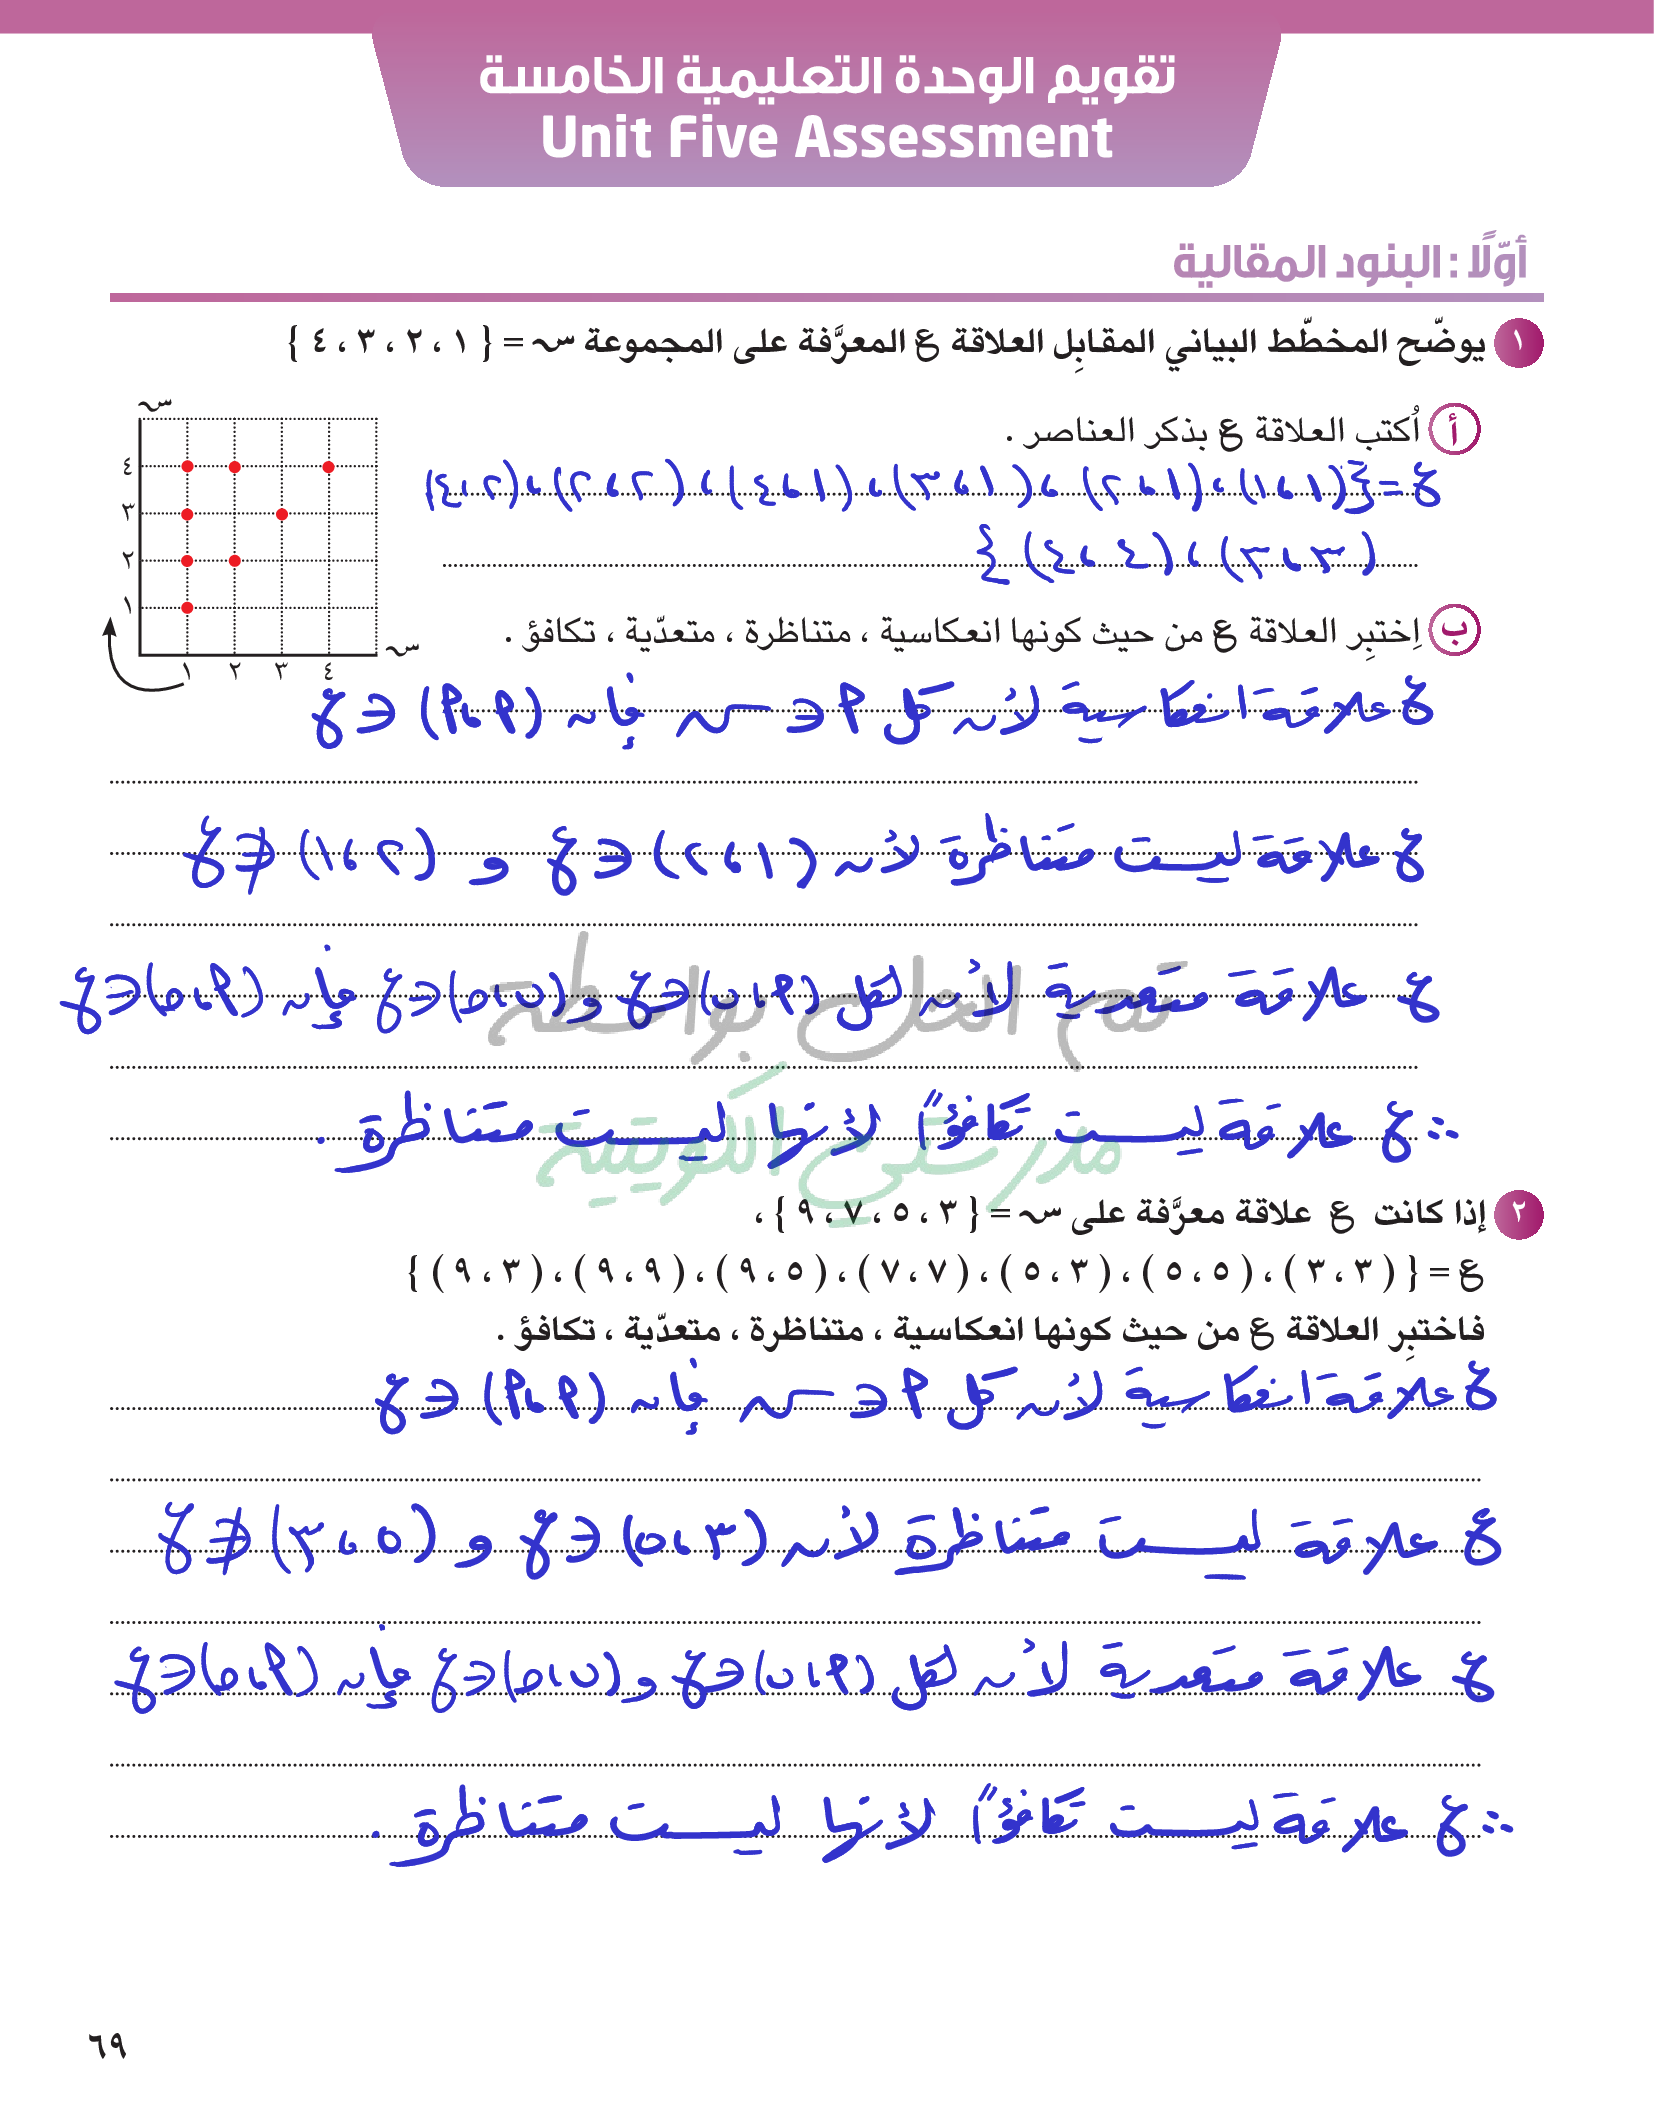 تقويم الوحدة التعليمية الخامسة
Unit Five Assessment
أوّلًا : البنود المقالية
١ يوضّح المخطّط البياني المقابِل العلاقة ع المعرَّفة على المجموعة سـ = { ١ ، ٢ ، ٣ ، ٤ }
أ اُكتب العلاقة ع بذكر العناصر .
ع = {(١،١) ، (١،٢) ، (١،٣) ، (١،٤) ، (٢،٢) ، (٢،٤)
(٣،٣) ، (٤،٤) }
سـ
٤
٣
٢
١
١ ٢ ٣ ٤
سـ
ب اِختبِر العلاقة ع من حيث كونها انعكاسية ، متناظرة ، متعدّية ، تكافؤ .
ع علاقة انعكاسية لأن كل P ∈ سـ فإن (P،P) ∈ ع
ع علاقة ليست متناظرة لأن (١،٢) ∈ ع و (٢،١) ∉ ع
ع علاقة متعدية لأن لكل (P،ب) ∈ ع و (ب،ه) ∈ ع فإن (P،ه) ∈ ع
تم الحل بواسطة
∴ ع علاقة ليست تكافؤاً لأنها ليست متناظرة .
مدرستي الكويتية
٢ إذا كانت ع علاقة معرَّفة على سـ = { ٣ ، ٥ ، ٧ ، ٩ } ،
ع = { ( ٣ ، ٣ ) ، ( ٥ ، ٥ ) ، ( ٣ ، ٥ ) ، ( ٧ ، ٧ ) ، ( ٥ ، ٩ ) ، ( ٩ ، ٩ ) ، ( ٣ ، ٩ ) }
فاختبِر العلاقة ع من حيث كونها انعكاسية ، متناظرة ، متعدّية ، تكافؤ .
ع علاقة انعكاسية لأن كل P ∈ سـ فإن (P،P) ∈ ع
ع علاقة ليست متناظرة لأن (٣،٥) ∈ ع و (٥،٣) ∉ ع
ع علاقة متعدية لأن لكل (P،ب) ∈ ع و (ب،ه) ∈ ع فإن (P،ه) ∈ ع
∴ ع علاقة ليست تكافؤاً لأنها ليست متناظرة .
٦٩